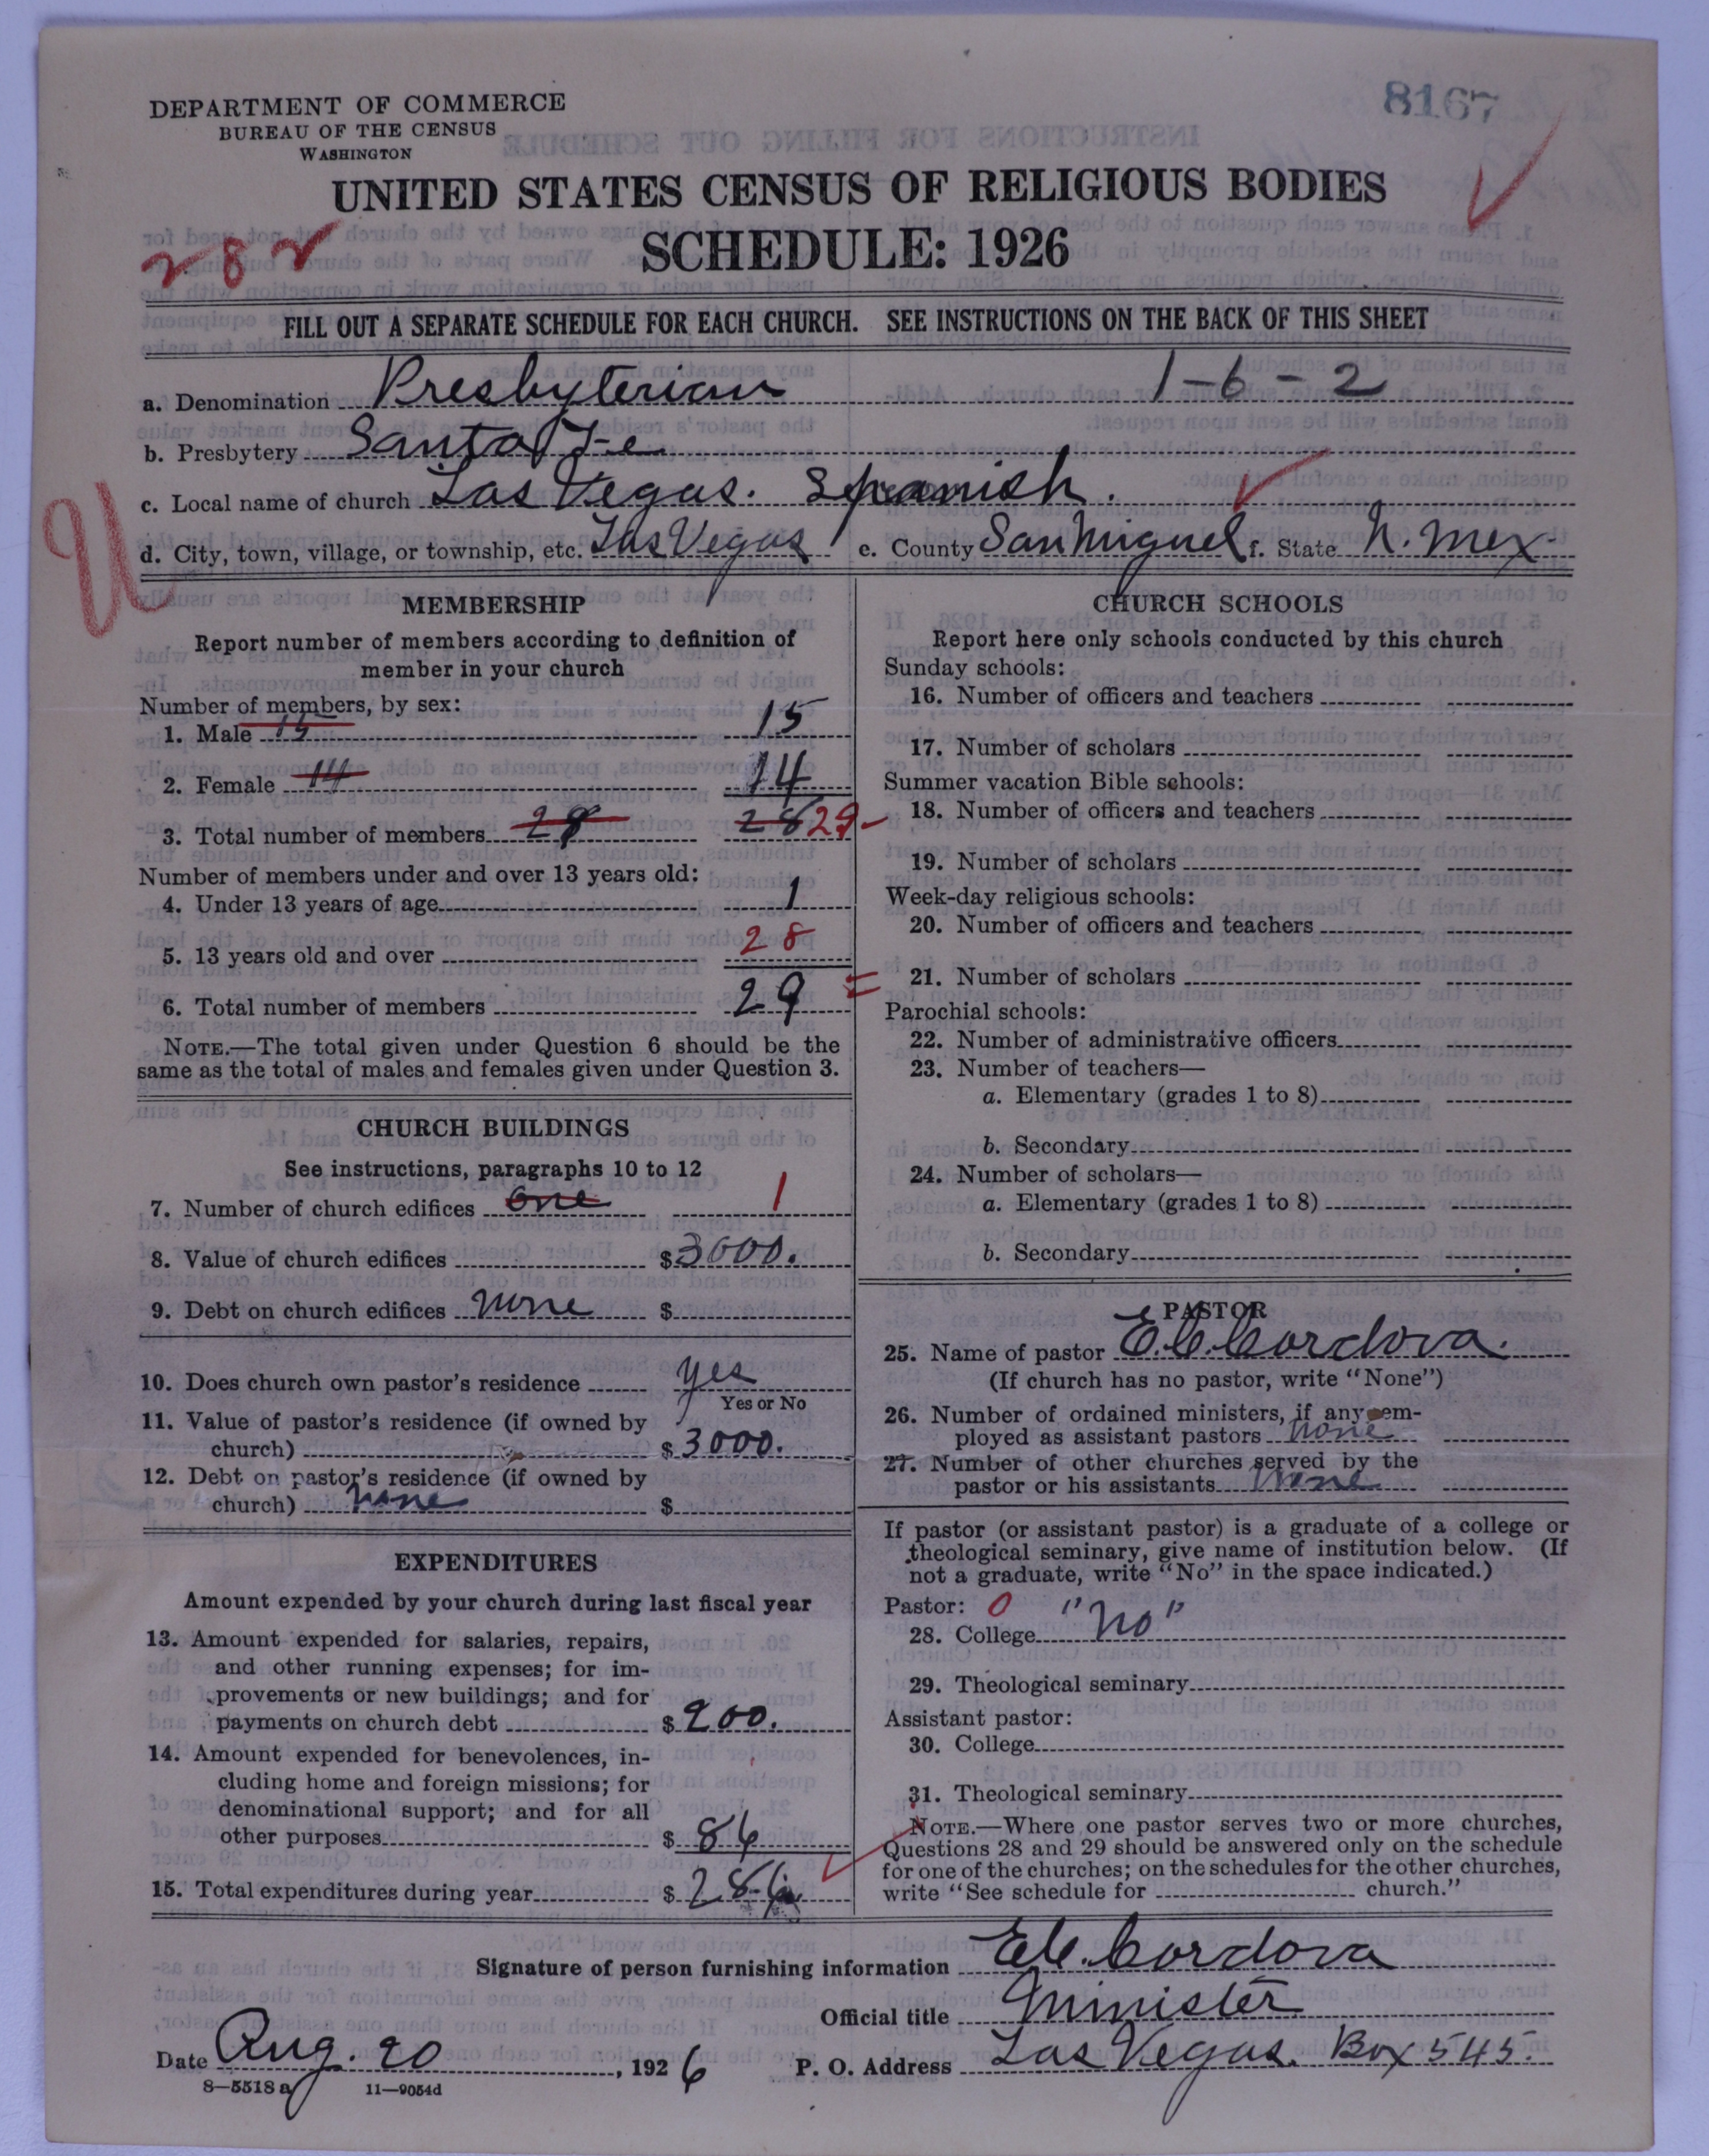 8167
DEPARTMENT OF COMMERCE
BUREAU OF THE CENSUS
WASHINGTON
UNITED STATES CENSUS OF RELIGIOUS BODIES
282
SCHEDULE: 1926
FILL OUT A SEPARATE SCHEDULE FOR EACH CHURCH. SEE INSTRUCTIONS ON THE BACK OF THIS SHEET
a. Denomination Presbyterian 1-6-2
b. Presbytery Santa Fe
c. Local name of church Las Vegas. Spanish.
U
d. City, town, village, or township, etc. Las Vegas e. County San Miguel f. State N. Mex.
MEMBERSHIP
Report number of members according to definition of
member in your church
Number of members, by sex:
1. Male 15 15
2. Female 14 14
3. Total number of members 28 28 29
Number of members under and over 13 years old:
4. Under 13 years of age 1
5. 13 years old and over 28
6. Total number of members 29
NOTE.—The total given under Question 6 should be the
same as the total of males and females given under Question 3.
CHURCH BUILDINGS
See instructions, paragraphs 10 to 12
7. Number of church edifices one 1
8. Value of church edifices $3000.
9. Debt on church edifices none $
10. Does church own pastor's residence yes
Yes or No
11. Value of pastor's residence (if owned by
church) $3000.
12. Debt on pastor's residence (if owned by
church) none $
EXPENDITURES
Amount expended by your church during last fiscal year
13. Amount expended for salaries, repairs,
and other running expenses; for im-
provements or new buildings; and for
payments on church debt $200.
14. Amount expended for benevolences, in-
cluding home and foreign missions; for
denominational support; and for all
other purposes $86
15. Total expenditures during year $286
CHURCH SCHOOLS
Report here only schools conducted by this church
Sunday schools:
16. Number of officers and teachers
17. Number of scholars
Summer vacation Bible schools:
18. Number of officers and teachers
19. Number of scholars
Week-day religious schools:
20. Number of officers and teachers
21. Number of scholars
Parochial schools:
22. Number of administrative officers
23. Number of teachers—
a. Elementary (grades 1 to 8)
b. Secondary
24. Number of scholars—
a. Elementary (grades 1 to 8)
b. Secondary
PASTOR
25. Name of pastor E.C. Cordova.
(If church has no pastor, write "None")
26. Number of ordained ministers, if any em-
ployed as assistant pastors none
27. Number of other churches served by the
pastor or his assistants none
If pastor (or assistant pastor) is a graduate of a college or
theological seminary, give name of institution below. (If
not a graduate, write "No" in the space indicated.)
Pastor: 0
28. College "No"
29. Theological seminary
Assistant pastor:
30. College
31. Theological seminary
NOTE.—Where one pastor serves two or more churches,
Questions 28 and 29 should be answered only on the schedule
for one of the churches; on the schedules for the other churches,
write "See schedule for church."
Signature of person furnishing information E.C. Cordova
Official title Minister
Date Aug. 20, 1926 P. O. Address Las Vegas. Box 545.
8—5518 a 11—9054d